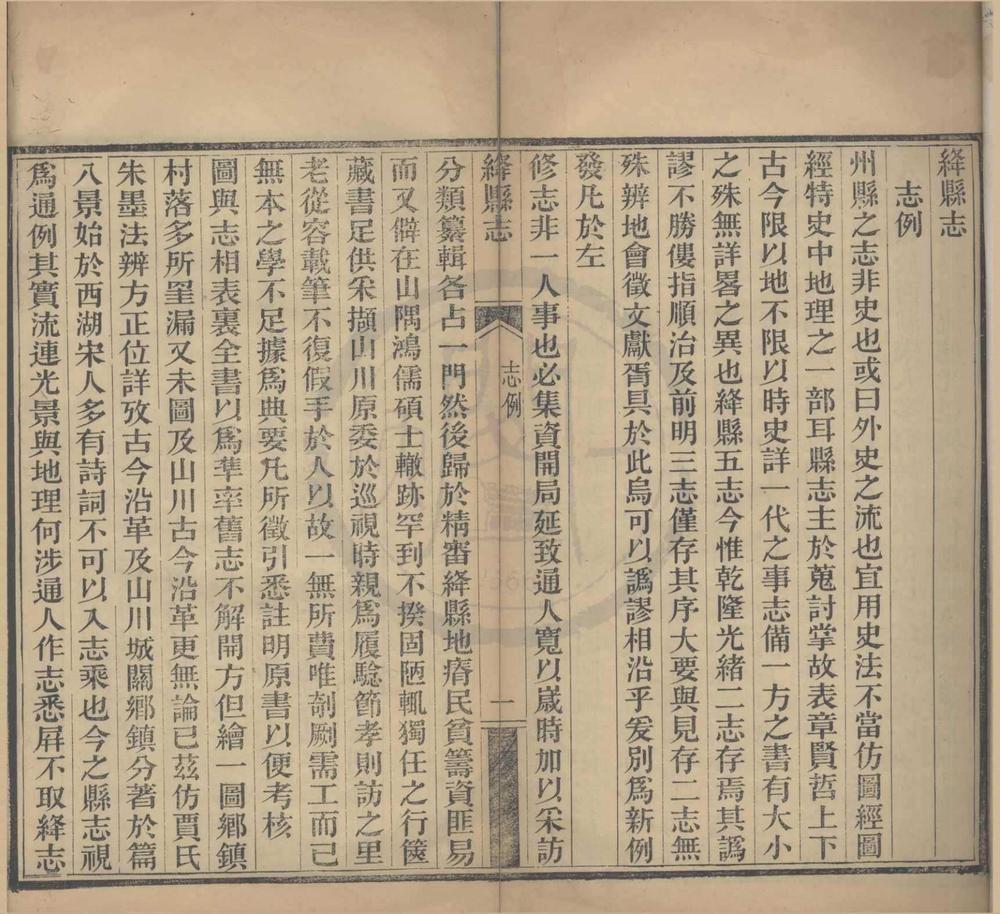 絳縣志
志例
州縣之志非史也或曰外史之流也宜用史法不當仿圖經圖
經特史中地理之一部耳縣志主於蒐討掌故表章賢哲上下
古今限以地不限以時史詳一代之事志備一方之書有大小
之殊無詳畧之異也絳縣五志今惟乾隆光緒二志存焉其譌
謬不勝僂指順治及前明三志僅存其序大要與見存二志無
殊辨地會徵文獻胥具於此烏可以譌謬相沿乎爰別爲新例
發凡於左
修志非一人事也必集資開局延致通人寬以嵗時加以采訪
絳縣志
志例
一
分類纂輯各占一門然後歸於精審絳縣地瘠民貧籌資匪易
而又僻在山隅鴻儒碩士轍跡罕到不揆固陋輒獨任之行篋
藏書足供采擷山川原委於巡視時親爲履驗節孝則訪之里
老從容載筆不復假手於人以故一無所費唯剞劂需工而已
無本之學不足據爲典要凡所徵引悉註明原書以便考核
圖與志相表裏全書以爲準率舊志不解開方但繪一圖鄉鎮
村落多所罣漏又未圖及山川古今沿革更無論已茲仿賈氏
朱墨法辨方正位詳攷古今沿革及山川城關鄉鎮分著於篇
八景始於西湖宋人多有詩詞不可以入志乘也今之縣志視
爲通例其實流連光景與地理何涉通人作志悉屏不取絳志